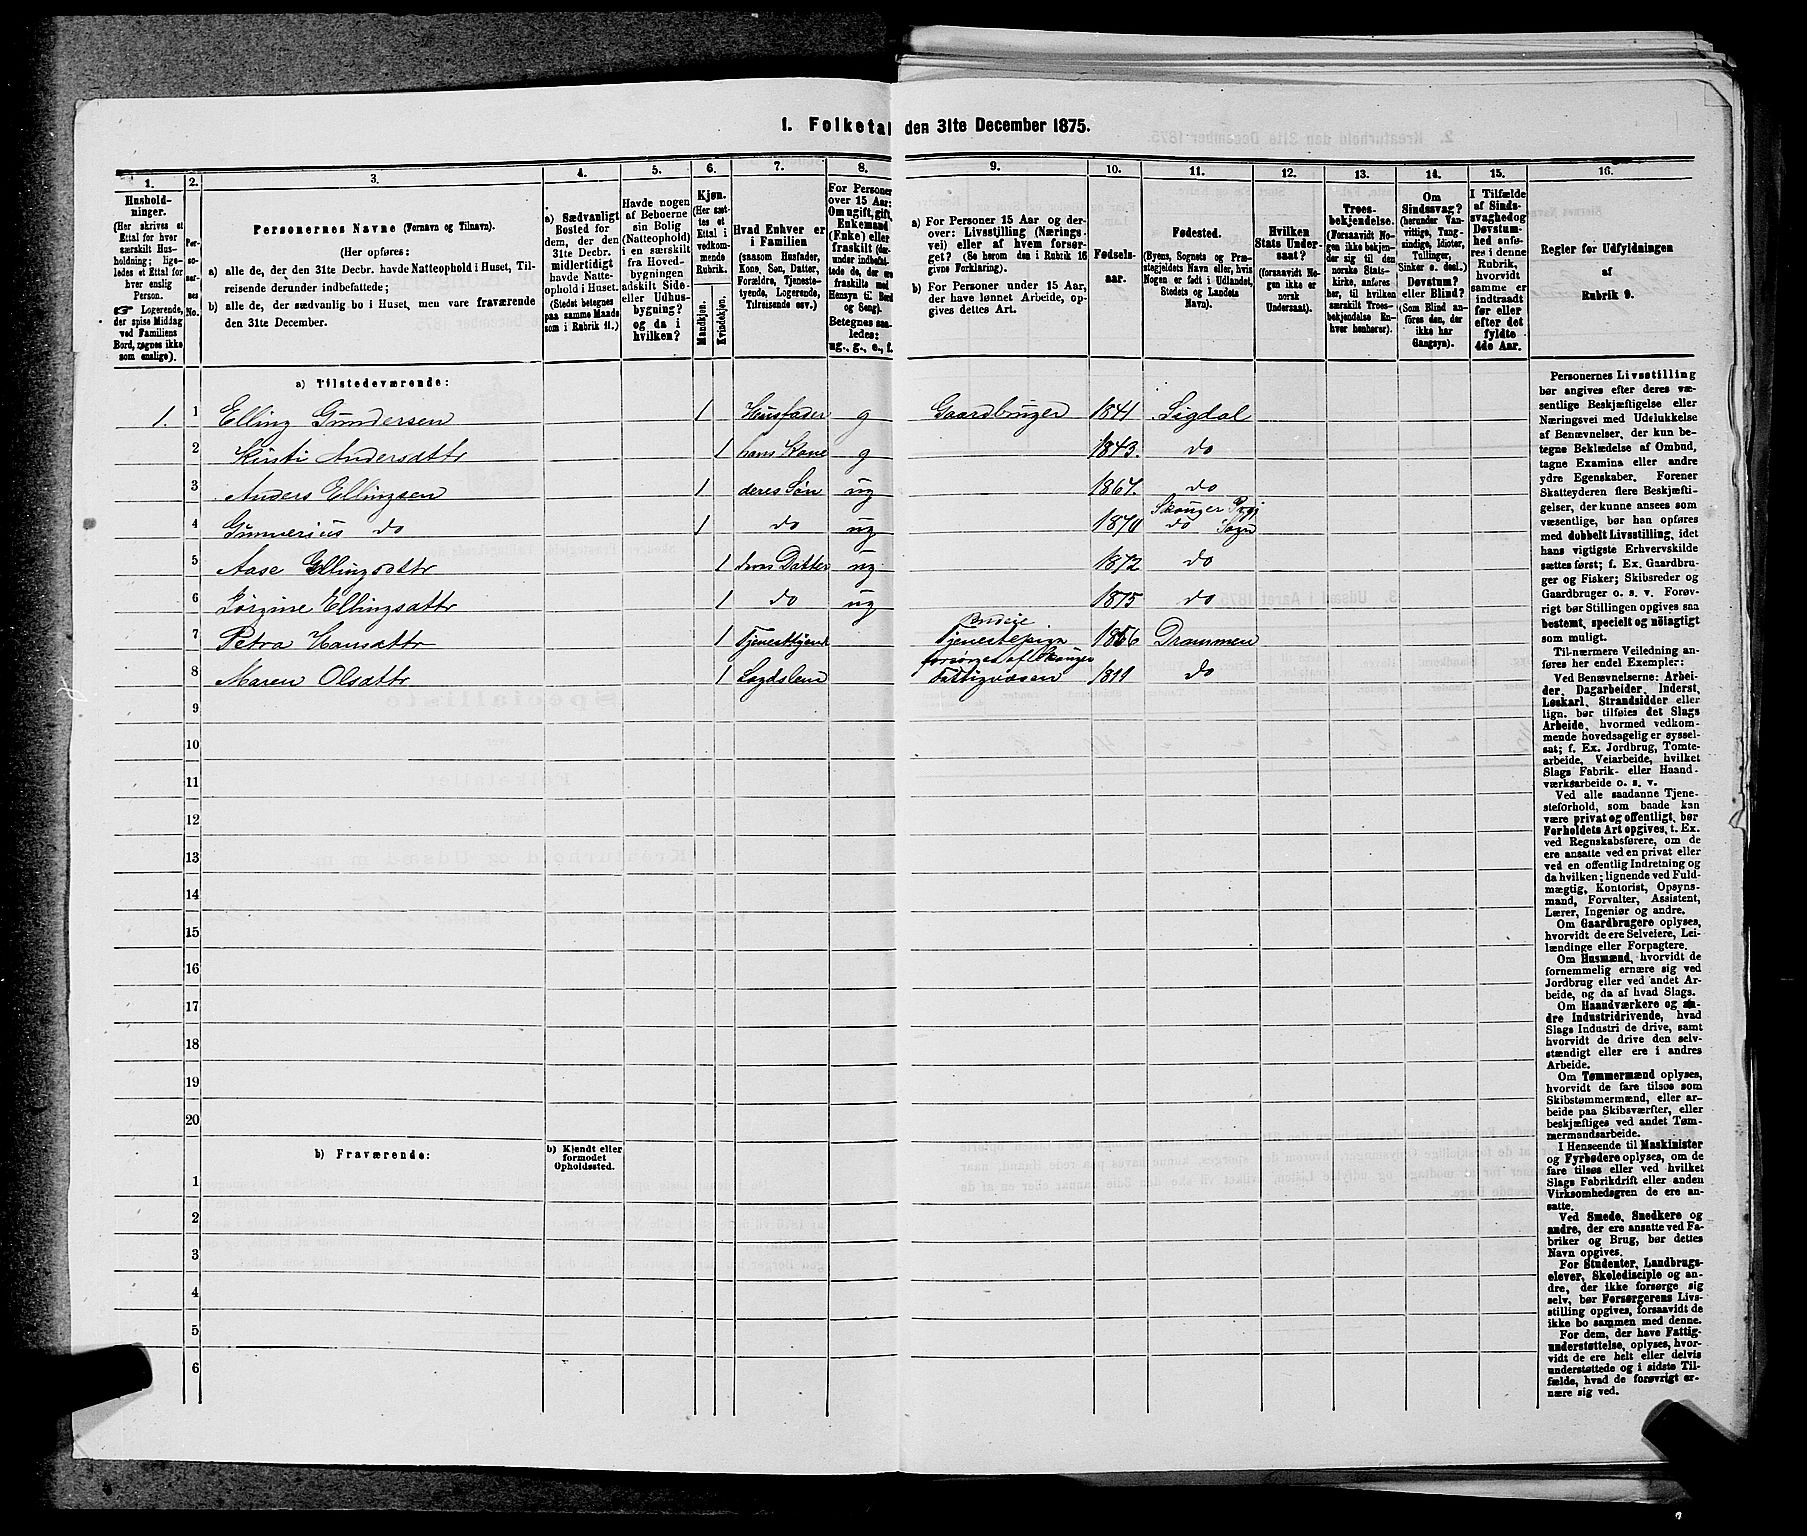 1. Folketal den 31te December 1875.
1. 2. 3. 4. 5. 6. 7. 8. 9. 10. 11. 12. 13. 14. 15. 16.
Hushold-
ninger.
(Her skrives et
Ettal for hver
særskilt Hus-
holdning; lige-
ledes et Ettal for
hver enslig
Person.
☞ Logerende,
der spise Middag
ved Familiens
Bord, regnes ikke
som enslige).
Per-
soner-
nes
No.
Personernes Navne (Fornavn og Tilnavn).
(Her opføres:
a) alle de, der den 31te Decbr. havde Natteophold i Huset, Til-
reisende derunder indbefattede;
b) alle de, der sædvanlig bo i Huset, men vare fraværende
den 31te December.
a) Sædvanligt
Bosted for
dem, der den
31te Decbr.
midlertidigt
havde Natte-
ophold i Huset.
(Stedet betegnes
paa samme Maade
som i Rubrik 11.)
Havde nogen
af Beboerne
sin Bolig
(Natteophold)
i en særskilt
fra Hoved-
bygningen
adskilt Side-
eller Udhus-
bygning?
og da i
hvilken?
Kjøn.
(Her sæt-
tes et
Ettal i
vedkom-
mende
Rubrik.
Mandkjøn.
Kvindekjøn.
Hvad Enhver er
i Familien
(saasom Husfader,
Kone, Søn, Datter,
Forældre, Tjeneste-
tyende, Logerende,
Tilreisende osv.)
For Personer
over 15 Aar:
Om ugift, gift,
Enkemand
(Enke) eller
fraskilt (der-
under indbefat-
tede de, der ere
fraskilte med
Hensyn til Bord
og Seng).
Betegnes saa-
ledes:
ug., g., e., f.
a) For Personer 15 Aar og der-
over: Livsstilling (Nærings-
vei) eller af hvem forsør-
get? (Se herom des i Rubrik 16
givne Forklaring).
b) For Personer under 15 Aar,
der have lønnet Arbeide, op-
gives dettes Art.
Fødsels-
aar.
Fødested.
(Byens, Sognets og Præ-
stegjeldets Navn eller, hvis
Nogen er født i Udlandet,
Stedets og Landets
Navn).
Hvilken
Stats Under-
saat?
(forsaavidt No-
gen ikke er
norsk
Undersaat).
Troes-
bekjendelse.
(Forsaavidt No-
gen ikke bekjen-
der sig til den
norske Stats-
kirke, anføres
her, til hvilken
særskilt Troes-
bekjendelse En-
hver henhører).
Om
Sindssvag?
(herunder Van-
vittige, Tung-
sindige, Idioter,
Tullinger,
Sinker o. desl.)
Døvstum?
eller Blind?
(Som Blind an-
føres den, der
ikke har
Gangsyn).
I Tilfælde
af Sinds-
svaghed og
Døvstum-
hed anfø-
res i denne
Rubrik,
hvorvidt
samme er
indtraadt
før eller
efter det
fyldte
4de Aar.
Regler for Udfyldningen
af
Rubrik 9.
a) Tilstedeværende:
1. 1 Elling Gundersen 1 Husfader g Gaardbruger 1841 Sigdal
2 Kirsti Andersdttr 1 hans Kone g 1843. do
3 Anders Ellingsen 1 deres Søn ug 1867. do
Skouger Prgj
4 Gunnerius do 1 do ug 1870 do Sogn
5 Aase Ellingsdttr 1 deres Datter ug 1872 do
6 Jørgine Ellingsdttr 1 do ug 1875 do
Budeie
7 Petra Hansdttr 1 Tjenesttyende Tjenestepige 1856 Drammen
forsørges af Skouger
8 Maren Olsdttr 1 Lægdslem Fattigvæsen 1811 do
9
10
11
12
13
14
15
16
17
18
19
20
b) Fraværende:
b) Kjendt eller
formodet
Opholdssted.
1
2
3
4
5
6
Personernes Livsstilling
bør angives efter deres væ-
sentlige Beskjæftigelse eller
Næringsvei med Udelukkelse
af Benævnelser, der kun be-
tegne Beklædelse af Ombud,
tagne Examina eller andre
ydre Egenskaber. Forener
Skatteyderen flere Beskjæfti-
gelser, der kunne ansees som
væsentlige, bør han opføres
med dobbelt Livsstilling, idet
hans vigtigste Erhvervskilde
sættes først; f. Ex. Gaardbru-
ger og Fisker; Skibsreder og
Gaardbruger o. s. v. Forøv-
rigt bør Stillingen opgives saa
bestemt, specielt og nøiagtigt
som muligt.
Til nærmere Veiledning an-
føres her endel Exempler:
Ved Benævnelserne: Arbei-
der, Dagarbeider, Inderst,
Løskarl, Strandsidder eller
lign. bør tilføies det Slags
Arbeide, hvormed vedkom-
mende hovedsagelig er syssel-
sat; f. Ex. Jordbrug, Tomte-
arbeide, Veiarbeide, hvilket
Slags Fabrik- eller Haand-
værksarbeide o. s. v.
Ved alle saadanne Tjene-
steforhold, som baade kan
være privat og offentligt, bør
Forholdets Art opgives, t. Ex.
ved Regnskabsførere, om de
ere ansatte ved en privat eller
ved en offentlig Indretning og
da hvilken; lignende ved Fuld-
mægtig, Kontorist, Opsyns-
mand, Forvalter, Assistent,
Lærer, Ingeniør og andre.
Om Gaardbrugere oplyses,
hvorvidt de ere Selveiere, Lei-
lændinge eller Forpagtere.
Om Husmænd, hvorvidt de
fornemmelig ernære sig ved
Jordbrug eller ved andet Ar-
beide, og da af hvad Slags.
Om Haandværkere og an-
dre Industridrivende, hvad
Slags Industri de drive, samt
hvorvidt de drive den selv-
stændigt eller ere i andres
Arbeide.
Om Tømmermænd oplyses,
hvorvidt de fare tilsøs som
Skibstømmermænd, eller ar-
beide paa Skibsværfter, eller
beskjæftiges ved andet Tøm-
mermandsarbeide.
I Henseende til Maskinister
og Fyrbødere oplyses, om de
fare tilsøs eller ved hvilket
Slags Fabrikdrift eller anden
Virksomhedsgren de ere an-
satte.
Ved Smede, Snedkere og
andre, der ere ansatte ved Fa-
briker og Brug, bør dettes
Navn opgives.
For Studenter, Landbrugs-
elever, Skoledisciple og an-
dre, der ikke forsørge sig
selv, bør Forsørgerens Livs-
stilling opgives, forsaavidt de
ikke bo sammen med denne.
For dem, der have Fattig-
understøttelse, oplyses, hvor-
vidt de ere helt eller delvis
understøttede og i sidste Til-
fælde, hvad de forøvrigt er-
nære sig ved.